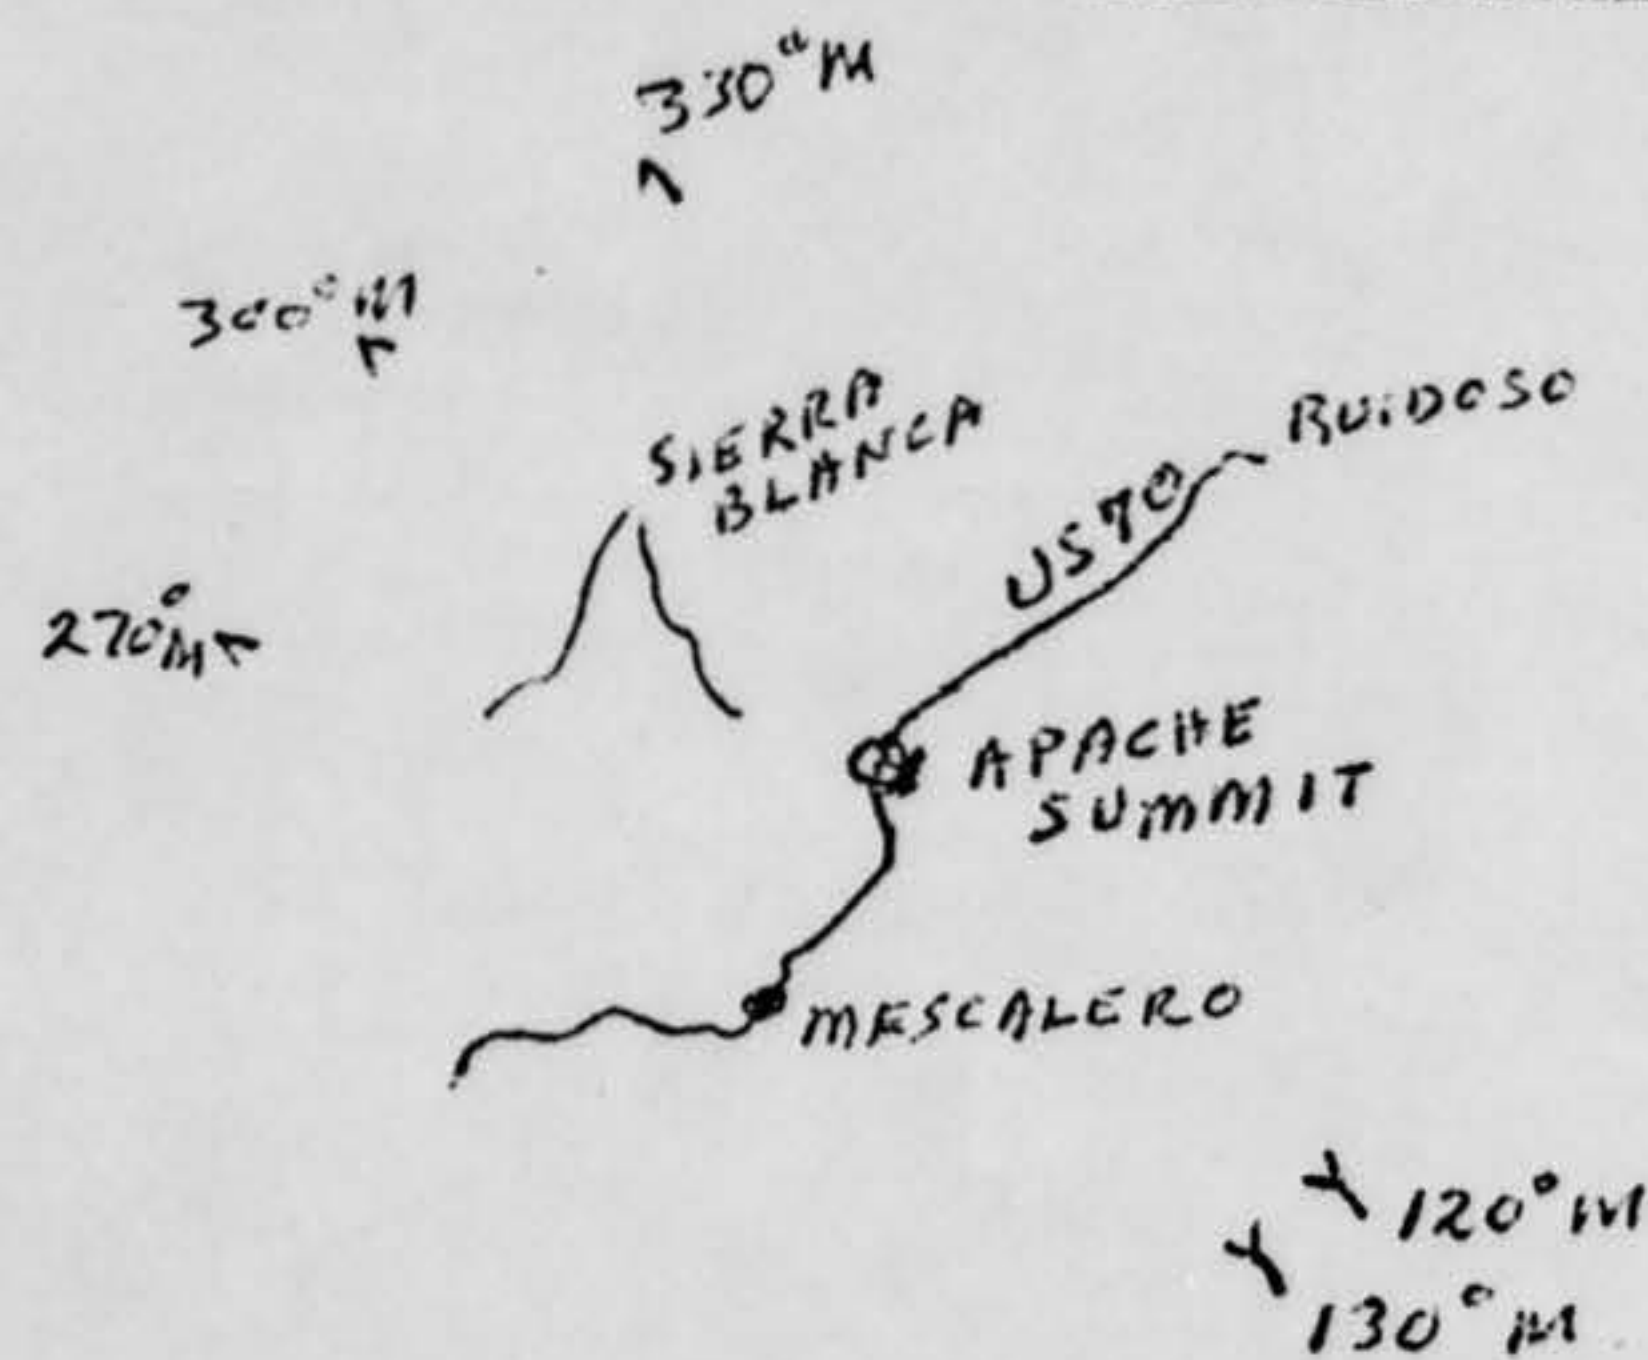 330° M
300° M
SIERRA
BLANCA
RUIDOSO
US 70
270° M
APACHE
SUMMIT
MESCALERO
120° M
130° M